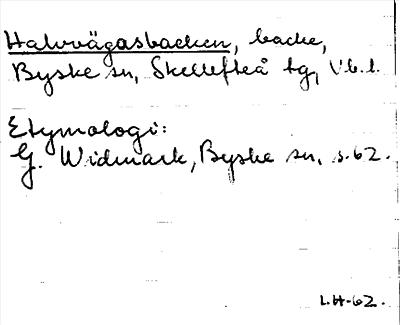 Halvvägasbacken, backe,
Byske sn, Skellefteå tg, Vb.l.
Etymologi:
G. Widmark, Byske sn, s. 62.
L.H-62.